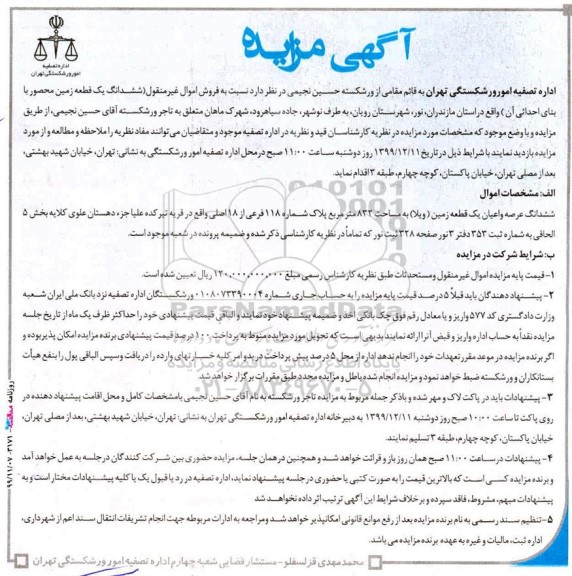 آگهی مزایده
اداره تصفیه
امور ورشکستگی تهران
اداره تصفیه امور ورشکستگی تهران به قائم مقامی از ورشکسته حسین نجیمی در نظر دارد نسبت به فروش اموال غیرمنقول(ششدانگ یک قطعه زمین محصور با
بنای احداثی آن) واقع در استان مازندران، نور، شهرستان رویان، به طرف نوشهر، جاده سیاهرود، شهرک ماهان متعلق به تاجر ورشکسته آقای حسین نجیمی، از طریق
مزایده و با وضع موجود که مشخصات مورد مزایده در نظریه کارشناسان قید و نظریه در اداره تصفیه موجود و متقاضیان می‌توانند مفاد نظریه را ملاحظه و مطالعه و از مورد
مزایده بازدید نمایند با شرایط ذیل در تاریخ ۱۳۹۹/۱۲/۱۱ روز دوشنبه ساعت ۱۱:۰۰ صبح در محل اداره تصفیه امور ورشکستگی به نشانی: تهران، خیابان شهید بهشتی،
بعد از مصلی تهران، خیابان پاکستان، کوچه چهارم، طبقه ۳ اقدام نماید.
الف: مشخصات اموال
ششدانگ عرصه واعیان یک قطعه زمین (ویلا) به مساحت ۸۳۳ متر مربع پلاک شماره ۱۱۸ فرعی از ۱۸ اصلی واقع در قریه تیرکده علیا جزء دهستان علوی کلایه بخش ۵
الحاقی به شماره ثبت ۳۵۳ دفتر ۳ نور صفحه ۳۲۸ ثبت نور که تماماً در نظریه کارشناسی ذکر شده و ضمیمه پرونده در شعبه موجود است.
ب: شرایط شرکت در مزایده
۱- قیمت پایه مزایده اموال غیرمنقول ومستحدثات طبق نظریه کارشناس رسمی مبلغ ۱۲۰,۰۰۰,۰۰۰,۰۰۰ ریال تعیین شده است.
۲- پیشنهاد دهندگان باید قبلاً ۵ درصد قیمت پایه مزایده را به حساب جاری شماره ۰۱۰۸۰۷۳۳۹۰۰۰۴ ورشکستگان اداره تصفیه نزد بانک ملی ایران شعبه
وزارت دادگستری کد ۵۷۷ واریز و یا معادل رقم فوق چک بانکی اخذ و ضمیمه پیشنهاد خود نمایند و الباقی قیمت پیشنهادی خود را حداکثر ظرف یک ماه از تاریخ جلسه
مزایده نقداً به حساب اداره واریز و قبض آنرا ارائه نمایند بدیهی است که تحویل مورد مزایده منوط به پرداخت ۱۰۰ درصد قیمت پیشنهادی برنده مزایده امکان پذیر بوده و
اگر برنده مزایده در موعد مقرر تعهدات خود را انجام ندهد اداره از محل ۵ درصد پیش پرداخت در بدو امر کلیه خسارتهای وارده را دریافت وسپس الباقی پول را بنفع هیأت
بستانکاران و ورشکسته ضبط خواهد نمود و مزایده انجام شده باطل و مزایده مجدد طبق مقررات برگزار خواهد شد.
۳- پیشنهادات باید در پاکت لاک و مهر شده و باذکر جمله مربوط به مزایده تاجر ورشکسته به نام آقای حسین نجیمی بامشخصات کامل و محل اقامت پیشنهاد دهنده در
روی پاکت تا ساعت ۱۰:۰۰ صبح روز دوشنبه ۱۳۹۹/۱۲/۱۱ به دبیرخانه اداره تصفیه امور ورشکستگی تهران به نشانی: تهران، خیابان شهید بهشتی، بعد از مصلی تهران،
خیابان پاکستان، کوچه چهارم، طبقه ۳ تسلیم نمایند.
۴- پیشنهادات در ساعت ۱۱:۰۰ صبح همان روز باز و قرائت خواهد شد و همچنین در همان جلسه، مزایده حضوری بین شرکت کنندگان در جلسه به عمل خواهد آمد
و برنده مزایده کسی است که بالاترین قیمت را به صورت کتبی یا حضوری در جلسه پیشنهاد نماید، اداره تصفیه در رد یا قبول یک یا کلیه پیشنهادات مختار است و به
پیشنهادات مبهم، مشروط، فاقد سپرده و برخلاف شرایط این آگهی ترتیب اثر داده نخواهد شد
۵- تنظیم سند رسمی به نام برنده مزایده بعد از رفع موانع قانونی امکانپذیر خواهد شد و مراجعه به ادارات مربوطه جهت انجام تشریفات انتقال سند اعم از شهرداری،
اداره ثبت، مالیات و غیره به عهده برنده مزایده می باشد.
محمدمهدی قزلسفلو - مستشار قضایی شعبه چهارم اداره تصفیه امور ورشکستگی تهران